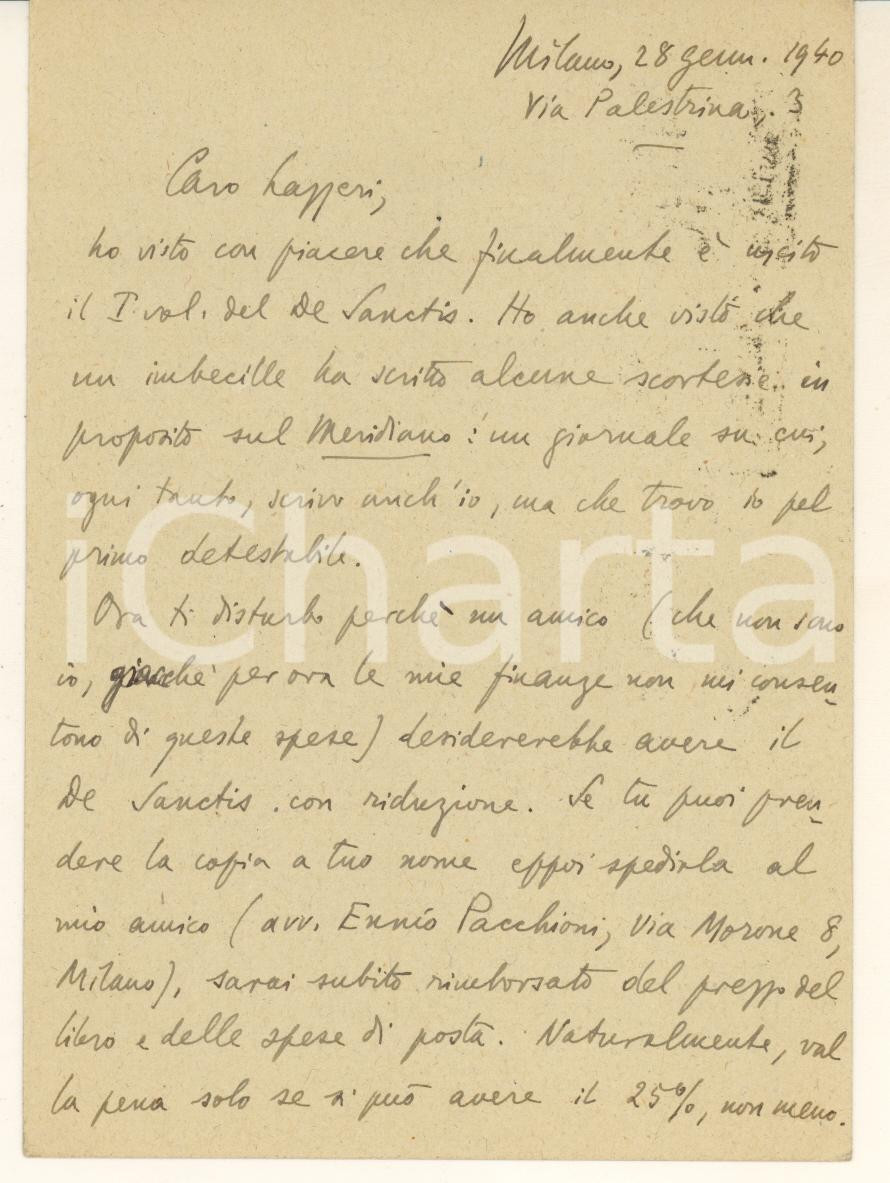 Milano, 28 genn. 1940
Via Palestrina, 3
Caro Lazzeri,
ho visto con piacere che finalmente è uscito
il I vol. del De Sanctis. Ho anche visto che
un imbecille ha scritto alcune scortesie in
proposito sul Meridiano: un giornale su cui,
ogni tanto, scrivo anch'io, ma che trovo io pel
primo detestabile.
Ora ti disturbo perché un amico (che non sono
io, giacché per ora le mie finanze non mi consen-
tono di queste spese) desidererebbe avere il
De Sanctis con riduzione. Se tu puoi pren-
dere la copia a tuo nome eppoi spedirla al
mio amico (avv. Ennio Pacchioni, Via Morone 8,
Milano), sarai subito rimborsato del prezzo del
libro e delle spese di posta. Naturalmente, val
la pena solo se si può avere il 25%, non meno.
iCharta